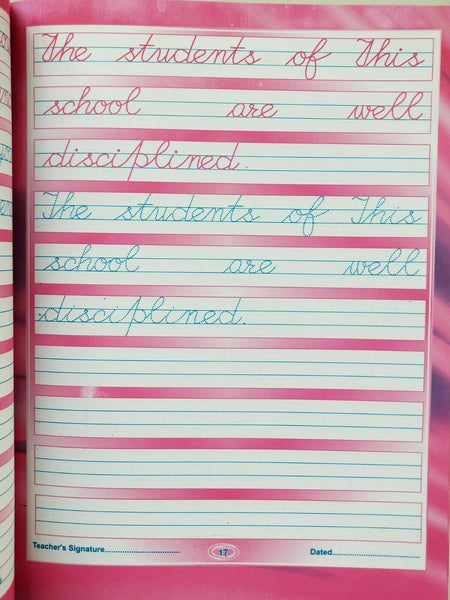 The students of This
school are well
disciplined.
The students of This
school are well
disciplined.
Teacher's Signature................................ 17 Dated................................